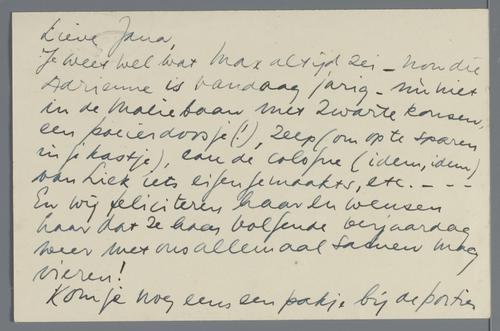 Lieve Jana,
Je weet wel wat Max altijd zei – non die
Adrienne is vandaag jarig – nu niet
in de Maliebaan met zwarte kousen,
een poeierdoosje (!), zeep (om op te sparen
in je kastje), eau de cologne (idem, idem)
van Liek iets eigengemaakts, etc. – – –
En wij feliciteren haar en wensen
haar dat ze haar volgende verjaardag
weer met ons allemaal samen mag
vieren!
Kom je nog eens een pakje bij de portier